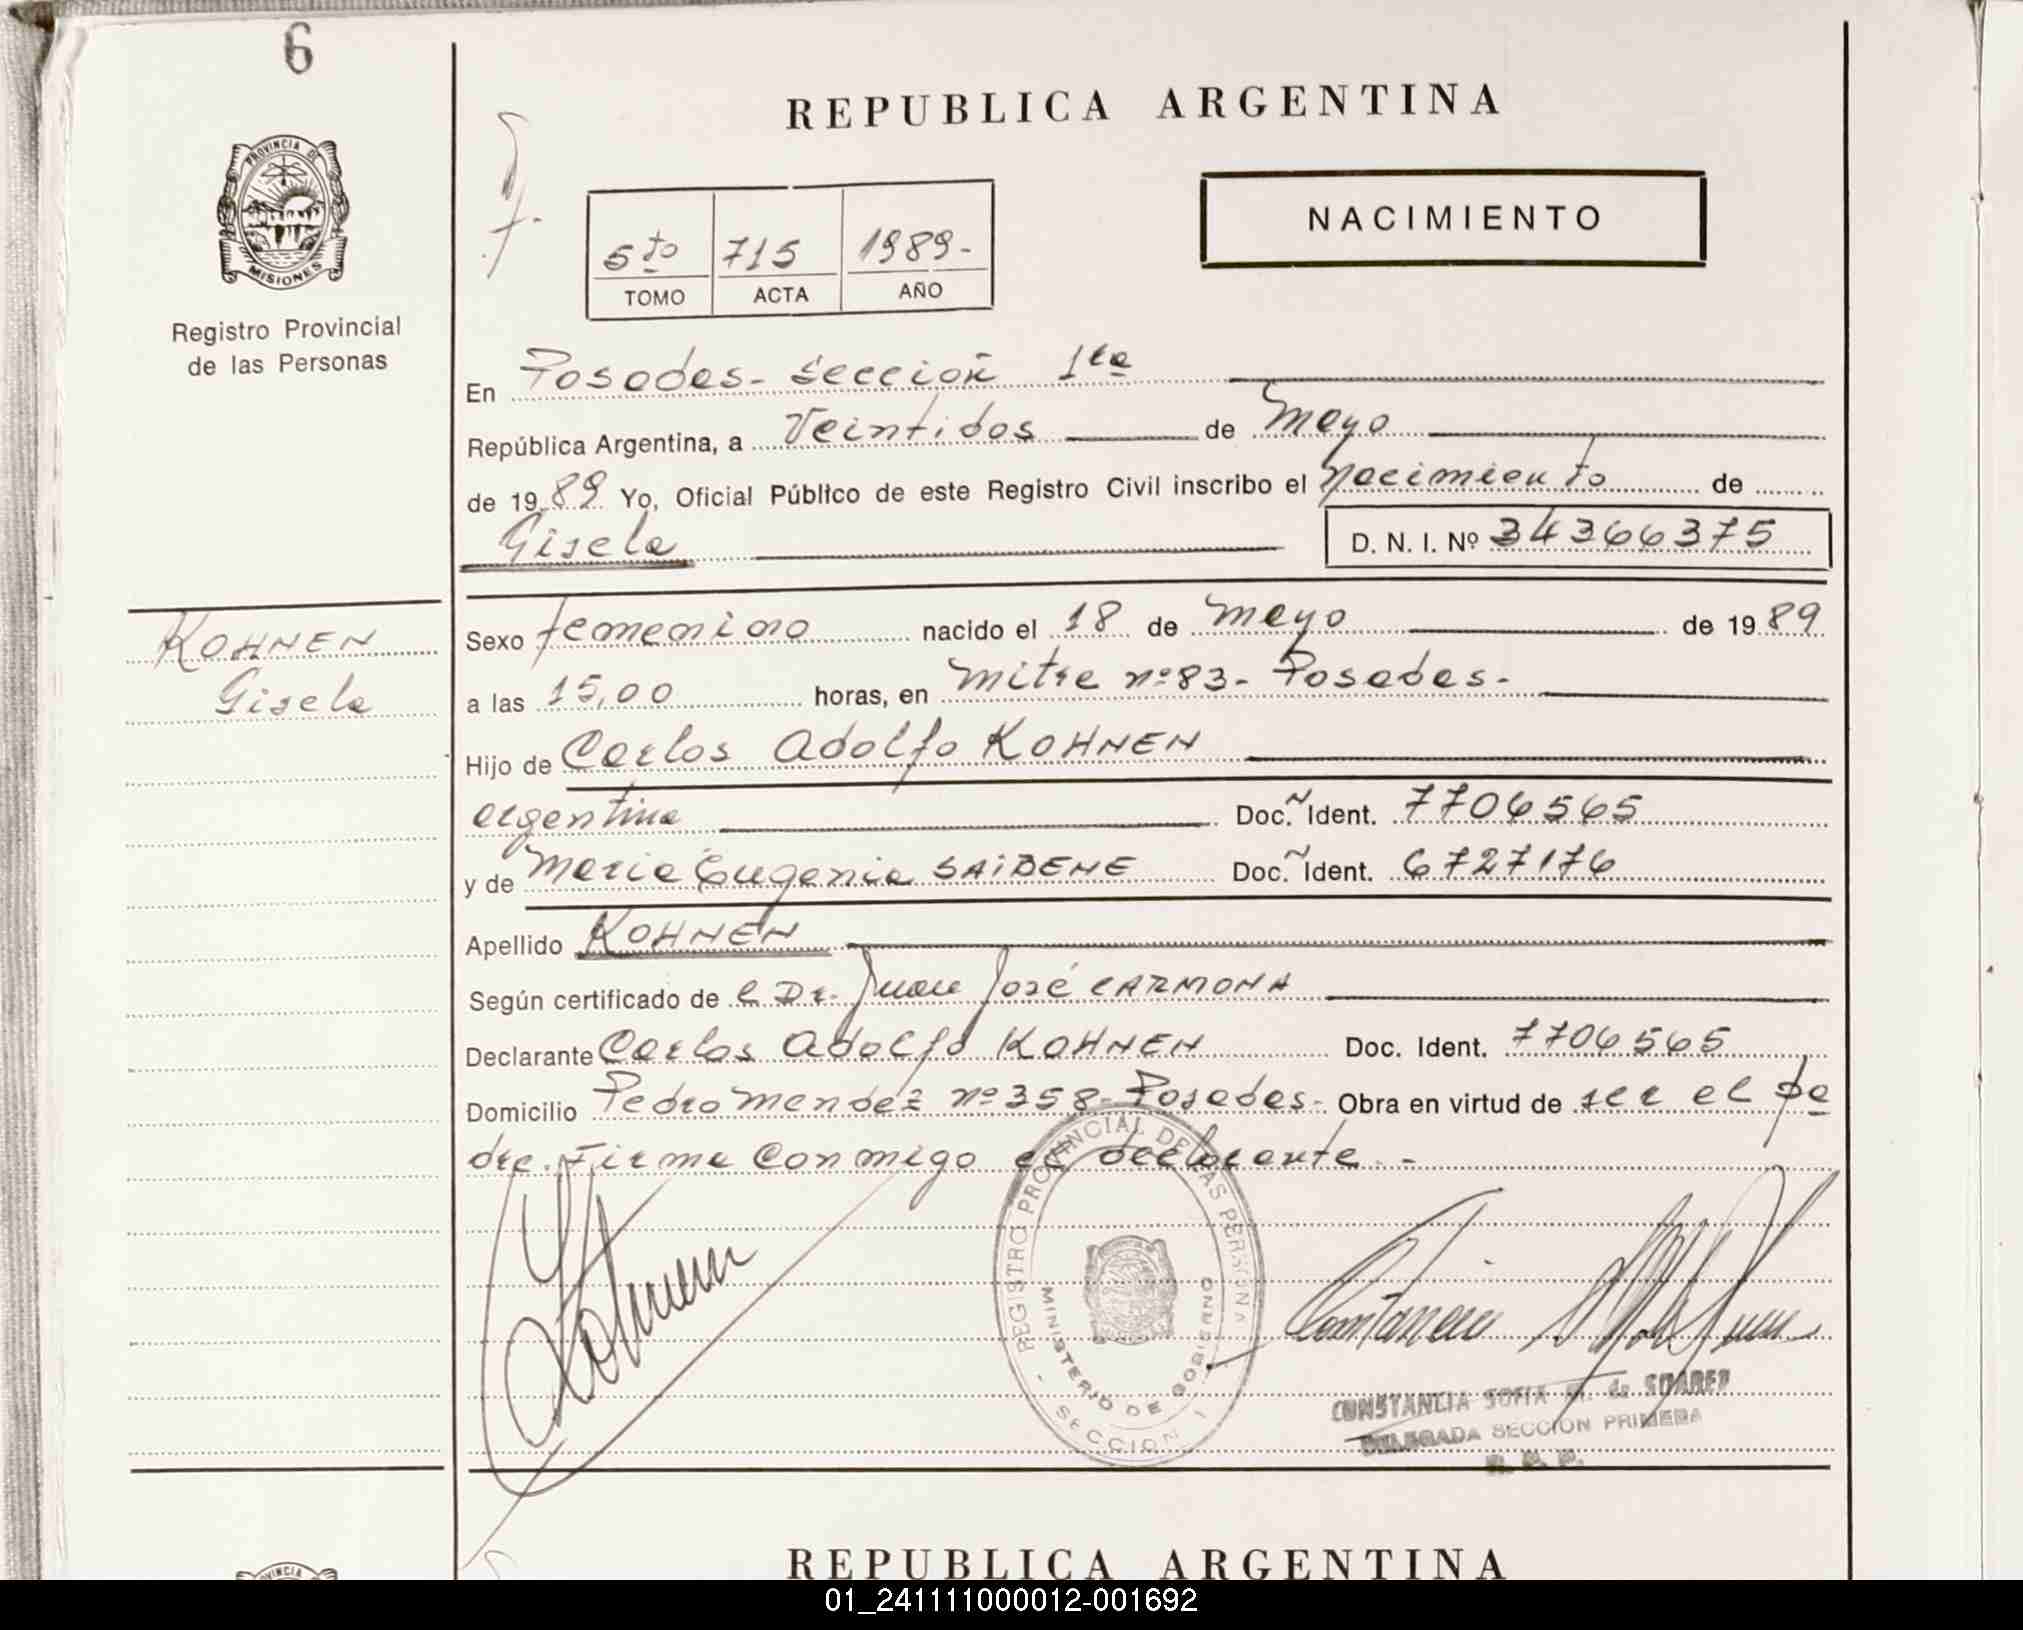 6
REPUBLICA ARGENTINA
PROVINCIA DE
MISIONES
Registro Provincial
de las Personas
5to 715 1989-
TOMO ACTA AÑO
NACIMIENTO
En Posadas- Sección 1ra
República Argentina, a Veintidos de Mayo
de 1989 Yo, Oficial Público de este Registro Civil inscribo el Nacimiento de
Gisela D. N. I. Nº 34366375
KOHNEN
Gisela
Sexo femenino nacido el 18 de Mayo de 1989
a las 15,00 horas, en Mitre nº 83- Posadas-
Hijo de Carlos Adolfo KOHNEN
argentina Doc. Ident. 7706565
y de Maria Eugenia SAIDENE Doc. Ident. 6727176
Apellido KOHNEN
Según certificado de l Dr. Juan José CARMONA
Declarante Carlos Adolfo KOHNEN Doc. Ident. 7706565
Domicilio Pedro Mendez nº 358- Posadas- Obra en virtud de ser el pa
dre. Firma conmigo el declarante.-
Kohnen
REGISTRO PROVINCIAL DE LAS PERSONAS
MINISTERIO DE GOBIERNO
- SECCION 1
CONSTANCIA SOFIA M. de SUAREZ
DELEGADA SECCION PRIMERA
R. P. P.
REPUBLICA ARGENTINA
01_241111000012-001692